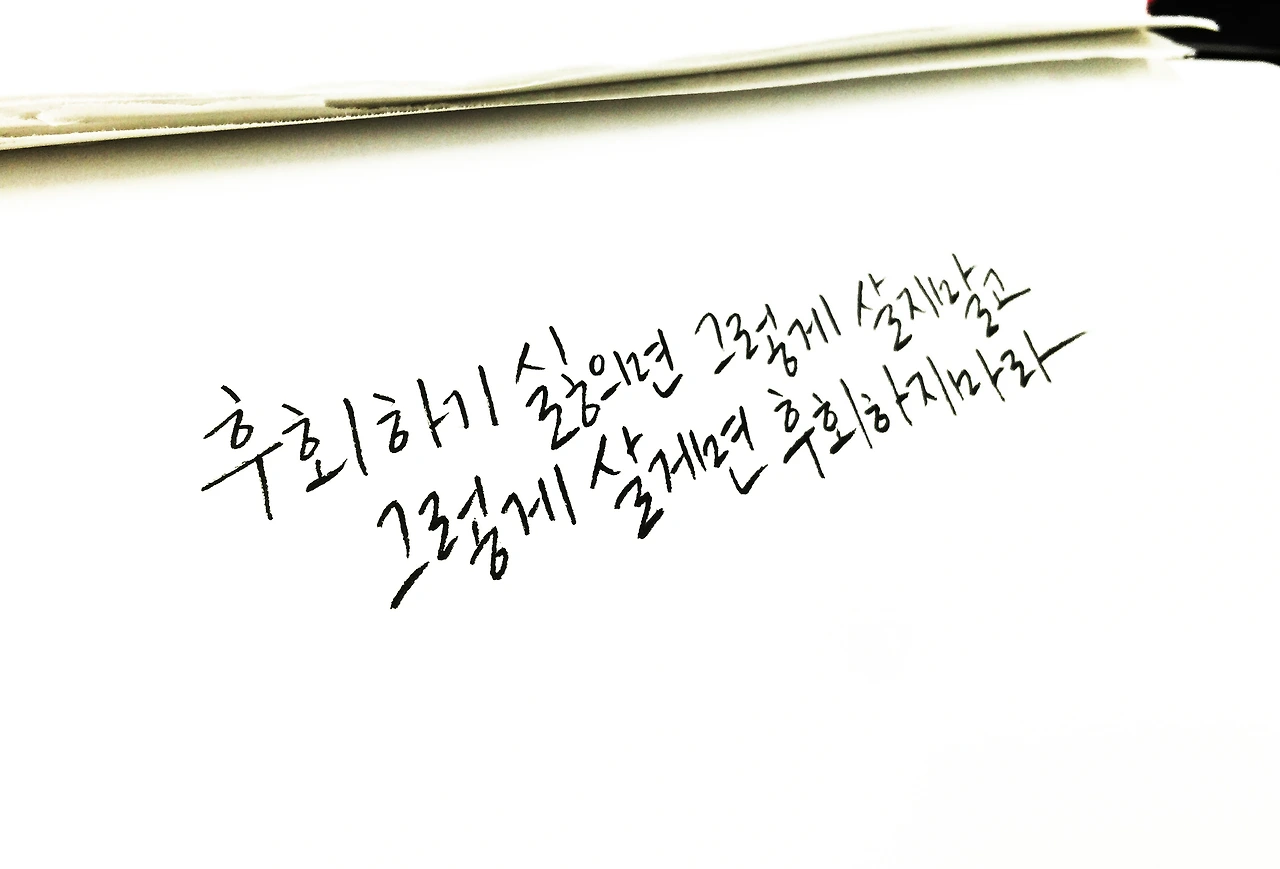 후회하기 싫으면 그렇게 살지말고
그렇게 살게면 후회하지마라